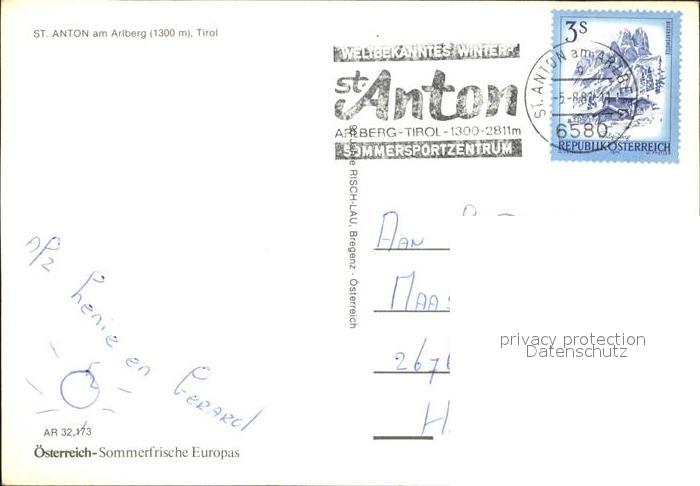 ST. ANTON am Arlberg (1300 m), Tirol
WELTBEKANNTES WINTER-
st. Anton
ARLBERG-TIROL-1300-2811m
SOMMERSPORTZENTRUM
ST. ANTON am ARLBERG
-5.-8.8
6580
3S
REPUBLIK ÖSTERREICH
RISCH-LAU, Bregenz - Österreich
AAN
MAAS
267
H
privacy protection
Datenschutz
en Gerard
AR 32,173
Österreich-Sommerfrische Europas